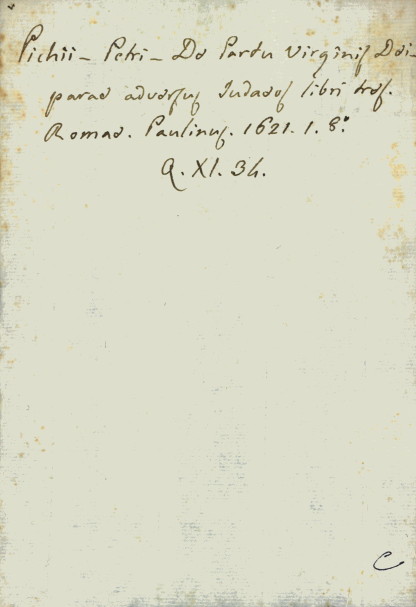 Pichii - Petri - De Partu Virginis Dei-
parae adversus Judaeos libri tres.
Romae. Paulinus. 1621. 1. 8.º
Q. XI. 34.
C